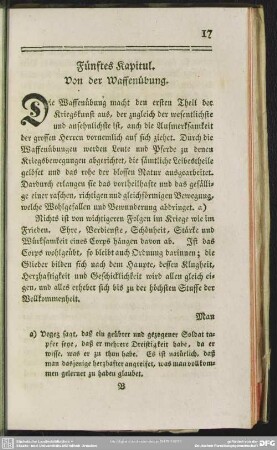 17
Fünftes Kapitul.
Von der Waffenübung.
Die Waffenübung macht den ersten Theil der
Kriegskunst aus, der zugleich der wesentlichste
und ansehnlichste ist, auch die Aufmerksamkeit
der grossen Herren vornemlich auf sich ziehet. Durch die
Waffenübungen werden Leute und Pferde zu denen
Kriegsbewegungen abgerichtet, die sämtliche Leibestheile
gelöset und das rohe der blossen Natur ausgearbeitet.
Dardurch erlangen sie das vortheilhafte und das gefälli-
ge einer raschen, richtigen und gleichförmigen Bewegung,
welche Wohlgefallen und Bewunderung abdringet. a)
Nichts ist von wichtigeren Folgen im Kriege wie im
Frieden. Ehre, Verdienste, Schönheit, Stärke und
Würksamkeit eines Corps hängen davon ab. Ist das
Corps wohlgeübt, so bleibt auch Ordnung darinnen; die
Glieder bilden sich nach dem Haupte, dessen Klugheit,
Herzhaftigkeit und Geschicklichkeit wird allen gleich ei-
gen, und alles erhebet sich bis zu der höchsten Stuffe der
Vollkommenheit.
Man
a) Vegez sagt, daß ein geübter und gezogener Soldat ta-
pfer seye, daß er mehrere Dreistigkeit habe, da er
wisse, was er zu thun habe. Es ist natürlich, daß
man dasjenige herzhafter angreifet, was man vollkom-
men gelernet zu haben glaubet.
B